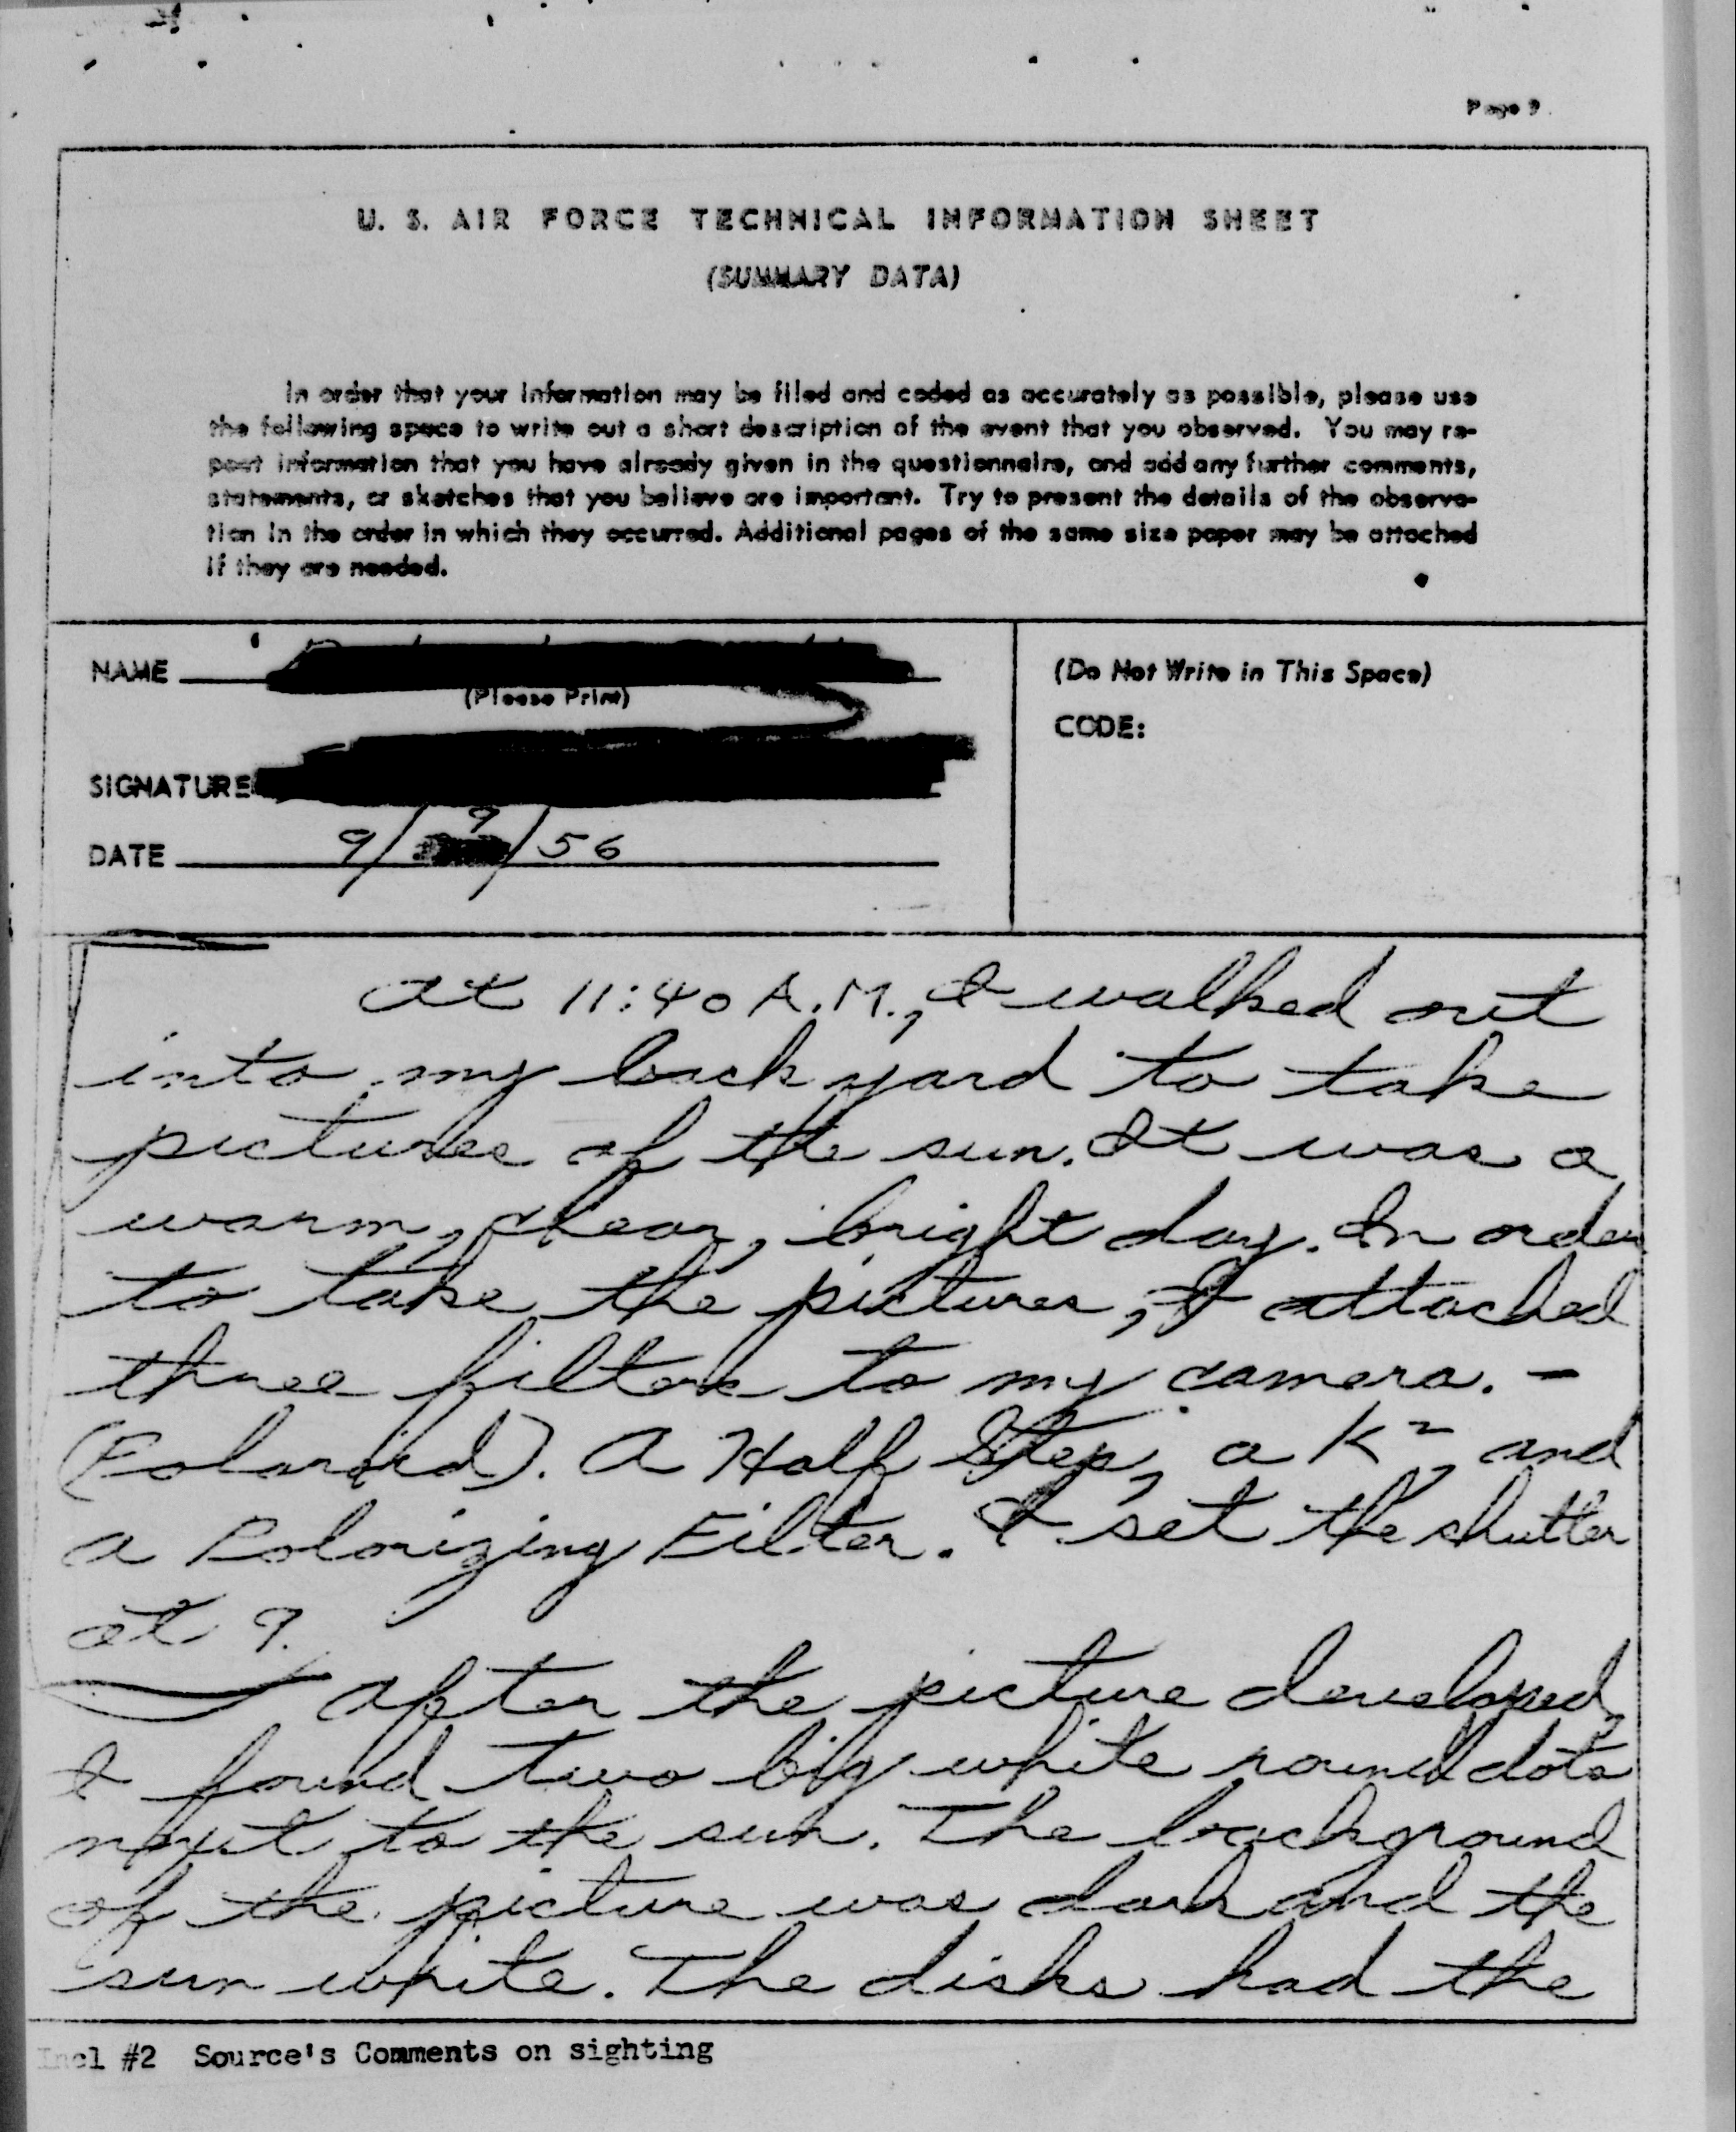 Page 9
U. S. AIR FORCE TECHNICAL INFORMATION SHEET
(SUMMARY DATA)
In order that your information may be filed and coded as accurately as possible, please use
the following space to write out a short description of the event that you observed. You may re-
peat information that you have already given in the questionnaire, and add any further comments,
statements, or sketches that you believe are important. Try to present the details of the observa-
tion in the order in which they occurred. Additional pages of the same size paper may be attached
if they are needed.
NAME
(Please Print)
SIGNATURE
DATE 9/9/56
(Do Not Write in This Space)
CODE:
At 11:40 A.M., I walked out
into my back yard to take
pictures of the sun. It was a
warm, clear, bright day. In order
to take the pictures, I attached
three filters to my camera. -
(Polaroid). A Half Step, a K2, and
a Polorizing Filter. I set the shutter
at 9.
After the picture developed,
I found two big white round dots
next to the sun. The background
of the picture was dark and the
sun white. The disks had the
Incl #2 Source's Comments on sighting